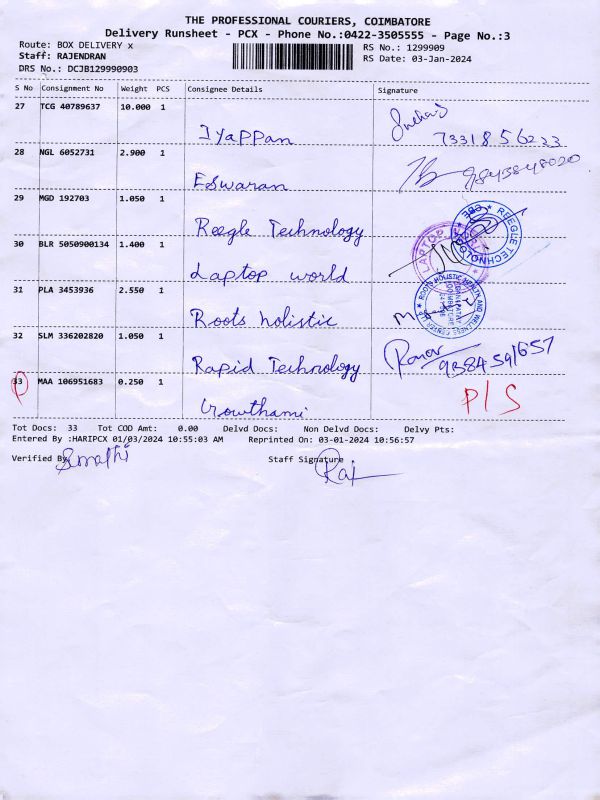 THE PROFESSIONAL COURIERS, COIMBATORE
Delivery Runsheet - PCX - Phone No.:0422-3505555 - Page No.:3
Route: BOX DELIVERY x
RS No.: 1299909
Staff: RAJENDRAN
RS Date: 03-Jan-2024
DRS No.: DCJB129990903
S No Consignment No Weight PCS Consignee Details Signature
27 TCG 40789637 10.000 1
Iyappan 7331856233
28 NGL 6052731 2.900 1
Eswaran 9843848020
29 MGD 192703 1.050 1
Reegle Technology
REEGLE TECHNOLOGY
30 BLR 5050900134 1.400 1
Laptop world
LAPTOP
31 PLA 3453936 2.550 1
Roots holistic
ROOTS HOLISTIC HEALTH AND WELLNESS CENTER LLP
32 SLM 336202820 1.050 1
Rapid Technology 9384591657
33 MAA 106951683 0.250 1
Gowthami P/S
Tot Docs: 33 Tot COD Amt: 0.00 Delvd Docs: Non Delvd Docs: Delvy Pts:
Entered By :HARIPCX 01/03/2024 10:55:03 AM Reprinted On: 03-01-2024 10:56:57
Verified By Staff Signature
Raj